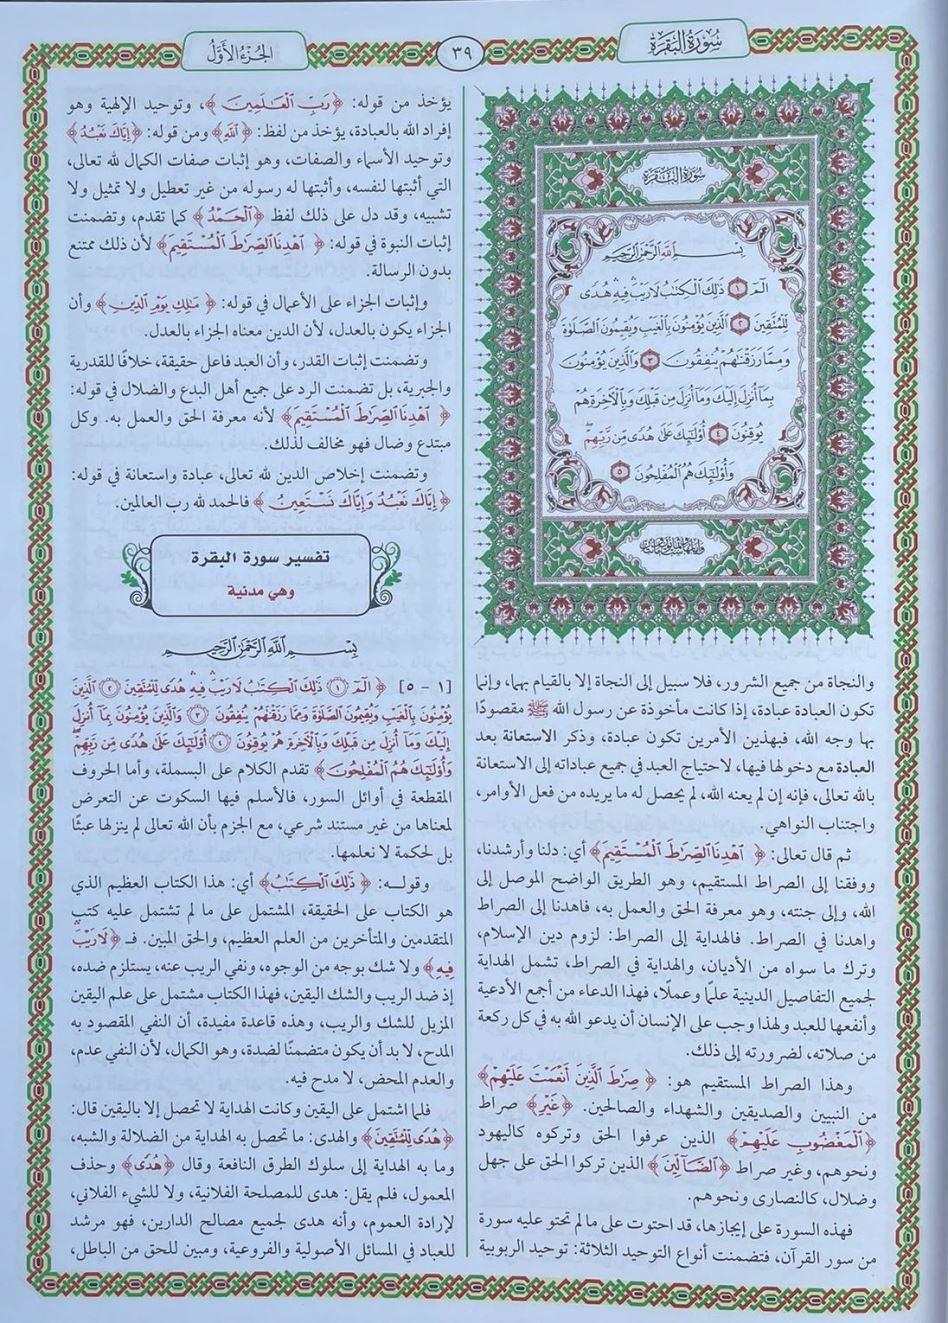 سُورَةُ البَقَرَةِ
٣٩
الجُزْءُ الأَوَّلُ
سُورَةُ البَقَرَةِ
بِسْمِ ٱللَّهِ ٱلرَّحْمَٰنِ ٱلرَّحِيمِ
الٓمٓ ١ ذَٰلِكَ ٱلْكِتَٰبُ لَا رَيْبَ ۛ فِيهِ ۛ هُدًى
لِّلْمُتَّقِينَ ٢ ٱلَّذِينَ يُؤْمِنُونَ بِٱلْغَيْبِ وَيُقِيمُونَ ٱلصَّلَوٰةَ
وَمِمَّا رَزَقْنَٰهُمْ يُنفِقُونَ ٣ وَٱلَّذِينَ يُؤْمِنُونَ
بِمَآ أُنزِلَ إِلَيْكَ وَمَآ أُنزِلَ مِن قَبْلِكَ وَبِٱلْءَاخِرَةِ هُمْ
يُوقِنُونَ ٤ أُو۟لَٰٓئِكَ عَلَىٰ هُدًى مِّن رَّبِّهِمْ ۖ
وَأُو۟لَٰٓئِكَ هُمُ ٱلْمُفْلِحُونَ ٥
والنجاة من جميع الشرور، فلا سبيل إلى النجاة إلا بالقيام بهما، وإنما
تكون العبادة عبادة، إذا كانت مأخوذة عن رسول الله ﷺ مقصودًا
بها وجه الله، فبهذين الأمرين تكون عبادة، وذكر الاستعانة بعد
العبادة مع دخولها فيها، لاحتياج العبد في جميع عباداته إلى الاستعانة
بالله تعالى، فإنه إن لم يعنه الله، لم يحصل له ما يريده من فعل الأوامر،
واجتناب النواهي.
ثم قال تعالى: ﴿ ٱهْدِنَا ٱلصِّرَٰطَ ٱلْمُسْتَقِيمَ ﴾ أي: دلنا وأرشدنا،
ووفقنا إلى الصراط المستقيم، وهو الطريق الواضح الموصل إلى
الله، وإلى جنته، وهو معرفة الحق والعمل به، فاهدنا إلى الصراط
واهدنا في الصراط. فالهداية إلى الصراط: لزوم دين الإسلام،
وترك ما سواه من الأديان، والهداية في الصراط، تشمل الهداية
لجميع التفاصيل الدينية علمًا وعملًا، فهذا الدعاء من أجمع الأدعية
وأنفعها للعبد ولهذا وجب على الإنسان أن يدعو الله به في كل ركعة
من صلاته، لضرورته إلى ذلك.
وهذا الصراط المستقيم هو: ﴿ صِرَٰطَ ٱلَّذِينَ أَنْعَمْتَ عَلَيْهِمْ ﴾
من النبيين والصديقين والشهداء والصالحين. ﴿غَيْرِ﴾ صراط
﴿ٱلْمَغْضُوبِ عَلَيْهِمْ﴾ الذين عرفوا الحق وتركوه كاليهود
ونحوهم، وغير صراط ﴿ٱلضَّآلِّينَ﴾ الذين تركوا الحق على جهل
وضلال، كالنصارى ونحوهم.
فهذه السورة على إيجازها، قد احتوت على ما لم تحتو عليه سورة
من سور القرآن، فتضمنت أنواع التوحيد الثلاثة: توحيد الربوبية
يؤخذ من قوله: ﴿رَبِّ ٱلْعَٰلَمِينَ﴾، وتوحيد الإلهية وهو
إفراد الله بالعبادة، يؤخذ من لفظ: ﴿ٱللَّهِ﴾ ومن قوله: ﴿إِيَّاكَ نَعْبُدُ﴾
وتوحيد الأسماء والصفات، وهو إثبات صفات الكمال لله تعالى،
التي أثبتها لنفسه، وأثبتها له رسوله من غير تعطيل ولا تمثيل ولا
تشبيه، وقد دل على ذلك لفظ ﴿ٱلْحَمْدُ﴾ كما تقدم، وتضمنت
إثبات النبوة في قوله: ﴿ ٱهْدِنَا ٱلصِّرَٰطَ ٱلْمُسْتَقِيمَ ﴾ لأن ذلك ممتنع
بدون الرسالة.
وإثبات الجزاء على الأعمال في قوله: ﴿ مَٰلِكِ يَوْمِ ٱلدِّينِ ﴾ وأن
الجزاء يكون بالعدل، لأن الدين معناه الجزاء بالعدل.
وتضمنت إثبات القدر، وأن العبد فاعل حقيقة، خلافًا للقدرية
والجبرية، بل تضمنت الرد على جميع أهل البدع والضلال في قوله:
﴿ ٱهْدِنَا ٱلصِّرَٰطَ ٱلْمُسْتَقِيمَ﴾ لأنه معرفة الحق والعمل به. وكل
مبتدع وضال فهو مخالف لذلك.
وتضمنت إخلاص الدين لله تعالى، عبادة واستعانة في قوله:
﴿ إِيَّاكَ نَعْبُدُ وَإِيَّاكَ نَسْتَعِينُ ﴾ فالحمد لله رب العالمين.
تفسير سورة البقرة
وهي مدنية
بِسْمِ ٱللَّهِ ٱلرَّحْمَٰنِ ٱلرَّحِيمِ
[١ - ٥] ﴿ الٓمٓ ١ ذَٰلِكَ ٱلْكِتَٰبُ لَا رَيْبَ ۛ فِيهِ ۛ هُدًى لِّلْمُتَّقِينَ ٢ ٱلَّذِينَ
يُؤْمِنُونَ بِٱلْغَيْبِ وَيُقِيمُونَ ٱلصَّلَوٰةَ وَمِمَّا رَزَقْنَٰهُمْ يُنفِقُونَ ٣ وَٱلَّذِينَ يُؤْمِنُونَ بِمَآ أُنزِلَ
إِلَيْكَ وَمَآ أُنزِلَ مِن قَبْلِكَ وَبِٱلْءَاخِرَةِ هُمْ يُوقِنُونَ ٤ أُو۟لَٰٓئِكَ عَلَىٰ هُدًى مِّن رَّبِّهِمْ ۖ
وَأُو۟لَٰٓئِكَ هُمُ ٱلْمُفْلِحُونَ﴾ تقدم الكلام على البسملة، وأما الحروف
المقطعة في أوائل السور، فالأسلم فيها السكوت عن التعرض
لمعناها من غير مستند شرعي، مع الجزم بأن الله تعالى لم ينزلها عبثًا
بل لحكمة لا نعلمها.
وقولـــه: ﴿ ذَٰلِكَ ٱلْكِتَٰبُ﴾ أي: هذا الكتاب العظيم الذي
هو الكتاب على الحقيقة، المشتمل على ما لم تشتمل عليه كتب
المتقدمين والمتأخرين من العلم العظيم، والحق المبين. فـ ﴿لَا رَيْبَ ۛ
فِيهِ﴾ ولا شك بوجه من الوجوه، ونفي الريب عنه، يستلزم ضده،
إذ ضد الريب والشك اليقين، فهذا الكتاب مشتمل على علم اليقين
المزيل للشك والريب، وهذه قاعدة مفيدة، أن النفي المقصود به
المدح، لا بد أن يكون متضمنًا لضدة، وهو الكمال، لأن النفي عدم،
والعدم المحض، لا مدح فيه.
فلما اشتمل على اليقين وكانت الهداية لا تحصل إلا باليقين قال:
﴿هُدًى لِّلْمُتَّقِينَ﴾ والهدى: ما تحصل به الهداية من الضلالة والشبه،
وما به الهداية إلى سلوك الطرق النافعة وقال ﴿هُدًى﴾ وحذف
المعمول، فلم يقل: هدى للمصلحة الفلانية، ولا للشيء الفلاني،
لإرادة العموم، وأنه هدى لجميع مصالح الدارين، فهو مرشد
للعباد في المسائل الأصولية والفروعية، ومبين للحق من الباطل،